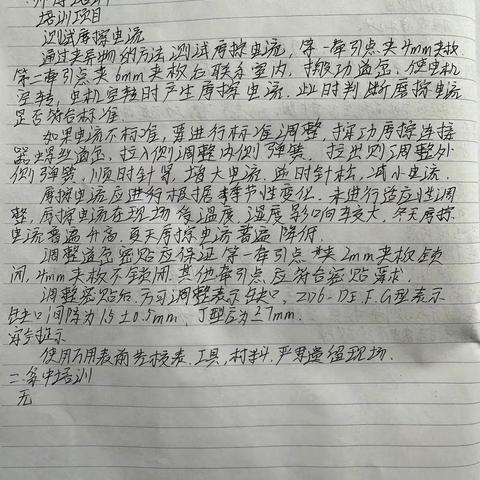 培训项目
测试摩擦电流
通过夹异物的方法测试摩擦电流,第一牵引点夹4mm夹板
第二牵引点夹6mm夹板后联系室内,操动道岔,使电机
空转,电机空转时产生摩擦电流.此时判断摩擦电流
是否符合标准
如果电流不标准,要进行标准调整,摩擦连接
器螺丝,拉入侧调整内侧弹簧,拉出则调整外
侧弹簧,顺时针紧,增大电流,逆时针松,减小电流.
摩擦电流应进行根据季节性变化,来进行适应性调
整,摩擦电流在现场受温度、湿度影响较大,冬天摩擦
电流普遍升高.夏天摩擦电流普遍降低
调整道岔密贴应保证第一牵引点夹2mm夹板锁
闭,4mm夹板不锁闭.其他牵引点应符合密贴要求.
调整密贴后,方可调整表示缺口,ZD6-D.E.F.G型表示
缺口间隙为1.5±0.5mm,J型应为≥7mm.
安全提示
使用万用表前先核表.工具,材料.严禁遗留现场.
二.集中培训
无